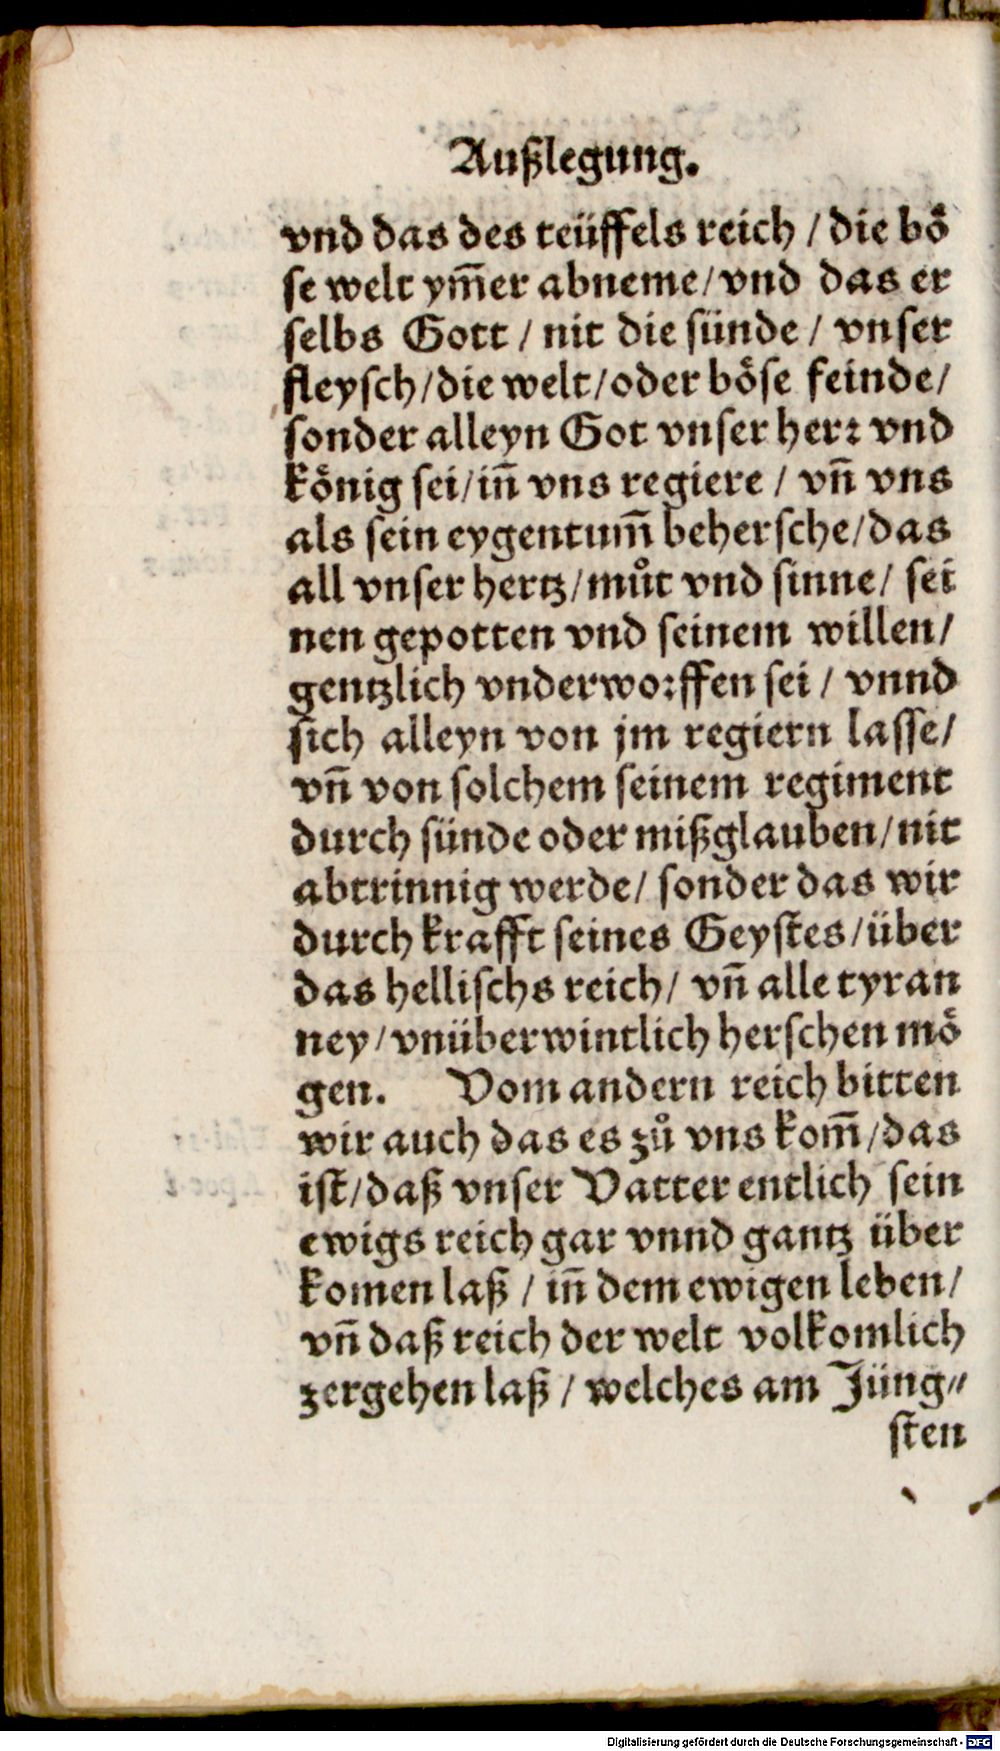 Außlegung.
vnd das des teüffels reich / die boͤ
se welt ym̃er abneme / vnd das er
selbs Gott / nit die sünde / vnser
fleysch / die welt / oder boͤse feinde /
sonder alleyn Got vnser herꝛ vnd
koͤnig sei / iñ vns regiere / vñ vns
als sein eygentum̃ behersche / das
all vnser hertz / můt vnd sinne / sei
nen gepotten vnd seinem willen /
gentzlich vnderwoꝛffen sei / vnnd
sich alleyn von jm regiern lasse /
vñ von solchem seinem regiment
durch sünde oder mißglauben / nit
abtrinnig werde / sonder das wir
durch krafft seines Geystes / über
das hellischs reich / vñ alle tyran
ney / vnüberwintlich herschen moͤ
gen. Vom andern reich bitten
wir auch das es zů vns kom̃ / das
ist / daß vnser Vatter entlich sein
ewigs reich gar vnnd gantz über
komen laß / iñ dem ewigen leben /
vñ daß reich der welt volkomlich
zergehen laß / welches am Jüng⸗
sten
Digitalisierung gefördert durch die Deutsche Forschungsgemeinschaft - DFG